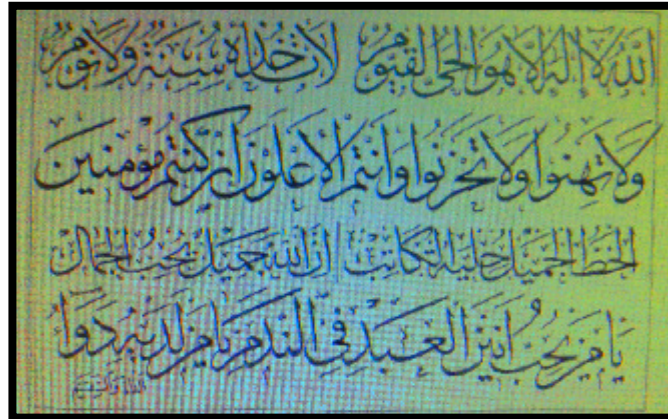 الله لا إله إلا هو الحي القيوم لا تأخذه سنة ولا نوم
ولا تهنوا ولا تحزنوا وأنتم الأعلون إن كنتم مؤمنين
الخط الجميل حلية الكاتب إن الله جميل يحب الجمال
يا من يحب أنين العبد في الندم يا من لديه دواء